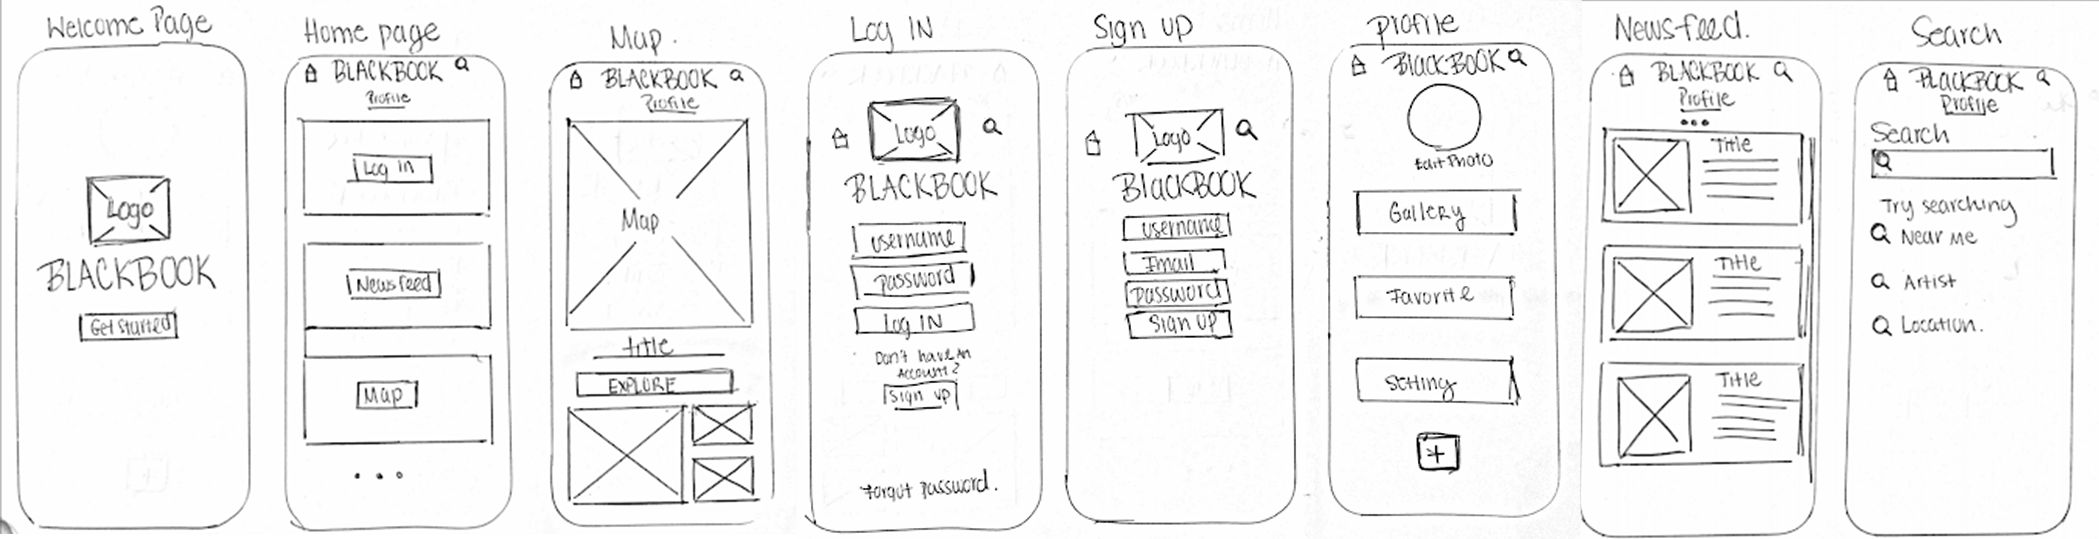 Welcome Page
Logo
BLACKBOOK
Get Started
Home page
BLACKBOOK
Profile
Log in
Newsfeed
Map
Map.
BLACKBOOK
Profile
Map
title
EXPLORE
Log IN
Logo
BLACKBOOK
username
password
log IN
Don't have an
Account?
Sign up
Forgot Password.
Sign up
Logo
BlacKBOOK
username
Email
Password
Sign up
profile
BlackBOOK
Edit Photo
Gallery
Favorite
Setting
News-feed.
BLACKBOOK
Profile
Title
Title
Title
Search
BLACKBOOK
Profile
Search
Try searching
Near me
Artist
Location.